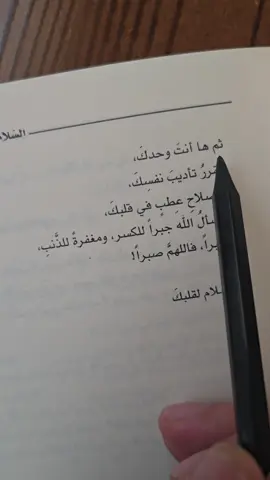 السلا
ثم ها أنتَ وحدكَ،
تأديبَ نفسِكَ،
عطبٍ في قلبكَ،
اللهَ جبراً للكسرِ، ومغفرةً للذَّنبِ،
فاللهمَّ صبراً!
لقلبكَ